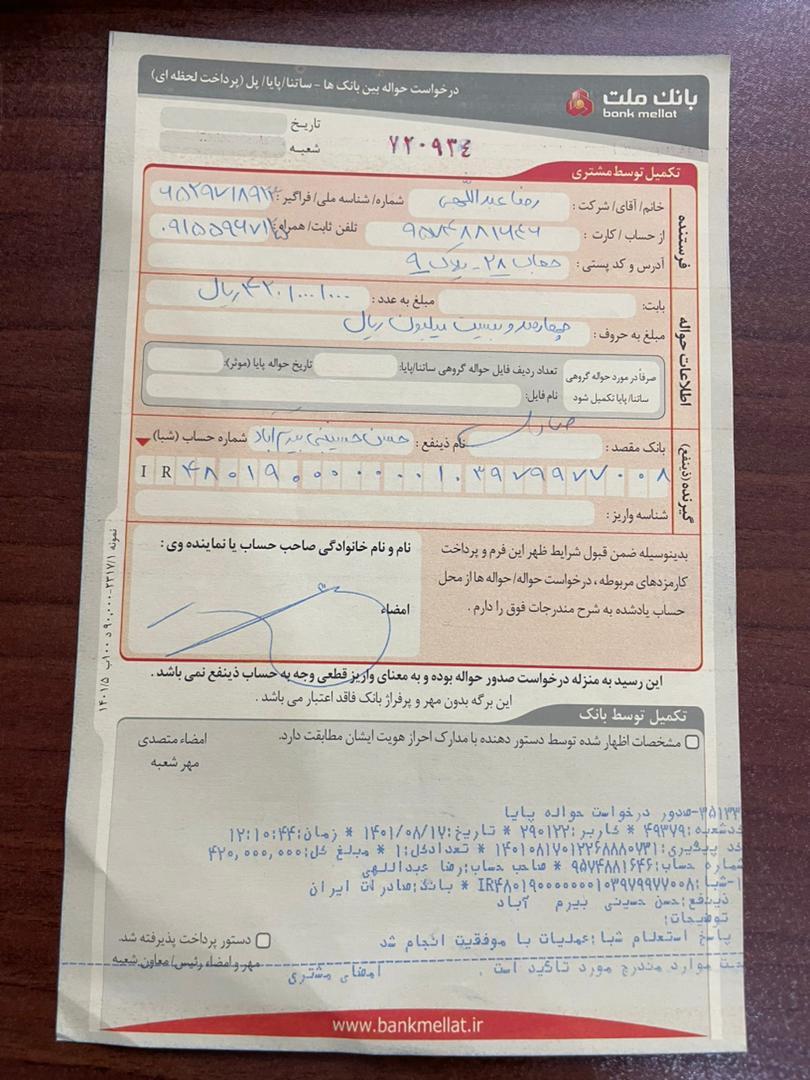 بانک ملت
bank mellat
درخواست حواله بین بانک ها - ساتنا/پایا/ پل (پرداخت لحظه ای)
تاریخ
شعبه
۷۲۰۹۳۴
تکمیل توسط مشتری
فرستنده
خانم/آقای/شرکت : رضا عبداللهی شماره/شناسه ملی/فراگیر :
از حساب/کارت : ۹۵۷۴۸۸۱۶۴۶ تلفن ثابت/همراه :
آدرس و کد پستی : ۲۸ - پلاک ۹
اطلاعات حواله
بابت : مبلغ به عدد : ۴۲۰/۰۰۰/۰۰۰ ریال
مبلغ به حروف : چهارصد و بیست میلیون ریال
صرفاً در مورد حواله گروهی ساتنا/پایا تکمیل شود
تعداد ردیف فایل حواله گروهی ساتنا/پایا: تاریخ حواله پایا (موثر):
نام فایل:
گیرنده (ذینفع)
بانک مقصد : صادرات نام ذینفع : حسن حسینی بیرم آباد شماره حساب (شبا)
IR ۴۸۰۱۹۰۰۰۰۰۰۰۰۱۰۳۹۷۹۹۷۷۰۰۸
شناسه واریز :
بدینوسیله ضمن قبول شرایط ظهر این فرم و پرداخت
کارمزدهای مربوطه ، درخواست حواله/حواله ها از محل
حساب یادشده به شرح مندرجات فوق را دارم .
نام و نام خانوادگی صاحب حساب یا نماینده وی :
امضاء
این رسید به منزله درخواست صدور حواله بوده و به معنای واریز قطعی وجه به حساب ذینفع نمی باشد .
این برگه بدون مهر و پرفراژ بانک فاقد اعتبار می باشد .
نمونه ۲۳۱۷/۱-۹۰,۰۰۰ د ۱۰۰ب ۱۴۰۱/۵
تکمیل توسط بانک
مشخصات اظهار شده توسط دستور دهنده با مدارک احراز هویت ایشان مطابقت دارد.
امضاء متصدی
مهر شعبه
۳۵۱۳۳-صدور درخواست حواله پایا
کدشعبه:۴۹۳۷۹ * کاربر:۲۹۰۱۲۲ * تاریخ:۱۴۰۱/۰۸/۱۷ * زمان:۱۲:۱۰:۴۴
کد پیگیری:۱۴۰۱۰۸۱۷۰۱۲۲۶۸۸۸۰۷۳۱ * تعدادکل:۱ * مبلغ کل:۴۲۰,۰۰۰,۰۰۰
شماره حساب:۹۵۷۴۸۸۱۶۴۶ * صاحب حساب:رضا عبداللهی
۱-شبا:IR۴۸۰۱۹۰۰۰۰۰۰۰۰۱۰۳۹۷۹۹۷۷۰۰۸ * بانک:صادرات ایران
ذینفع:حسن حسینی بیرم آباد
توضیحات:
پاسخ استعلام شبا:عملیات با موفقیت انجام شد
صحت موارد مندرج مورد تاکید است .
امضای مشتری
دستور پرداخت پذیرفته شد.
مهر و امضاء رئیس/معاون شعبه
www.bankmellat.ir